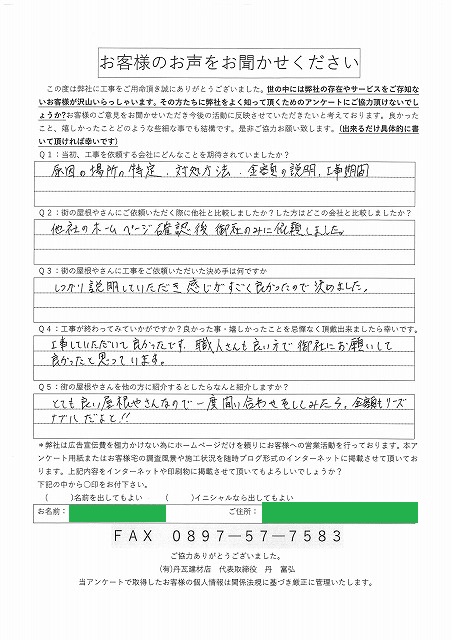 お客様のお声をお聞かせください
この度は弊社に工事をご用命頂き誠にありがとうございました。世の中には弊社の存在やサービスをご存知な
いお客様が沢山いらっしゃいます。その方たちに弊社をよく知って頂くためのアンケートにご協力頂けないでし
ょうか?お客様のご意見をお聞かせいただき今後の活動に反映させていただきたいと考えております。良かった
こと、嬉しかったことどのような些細な事でも結構です。是非ご協力お願い致します。(出来るだけ具体的に書
いて頂ければ幸いです)
Q1:当初、工事を依頼する会社にどんなことを期待されていましたか?
原因の場所の特定、対処方法、金額の説明、工事期間
Q2:街の屋根やさんにご依頼いただく際に他社と比較しましたか?した方はどこの会社と比較しましたか?
他社のホームページ確認後御社のみに依頼しました。
Q3:街の屋根やさんに工事をご依頼いただいた決め手は何ですか
しっかり説明していただき感じがすごく良かったので決めました。
Q4:工事が終わってみていかがですか?良かった事・嬉しかったことを忌憚なく頂戴出来ましたら幸いです。
工事していただいて良かったです。職人さんも良い方で御社にお願いして
良かったと思っています。
Q5:街の屋根やさんを他の方に紹介するとしたらなんと紹介しますか?
とても良い屋根やさんなので一度問い合わせをしてみたら。金額もリーズ
ナブルだよと!!
*弊社は広告宣伝費を極力かけない為にホームページだけを頼りにお客様への営業活動を行っております。本ア
ンケート用紙またはお客様宅の調査風景や施工状況を随時ブログ形式のインターネットに掲載させて頂いてお
ります。上記内容をインターネットや印刷物に掲載させて頂いてもよろしいでしょうか?
下記の中から〇印をお付下さい。
( )名前を出してもよい ( )イニシャルなら出してもよい
お名前: ご住所:
FAX 0897-57-7583
ご協力ありがとうございました。
(有)丹瓦建材店 代表取締役 丹 富弘
当アンケートで取得したお客様の個人情報は関係法規に基づき厳正に管理いたします。